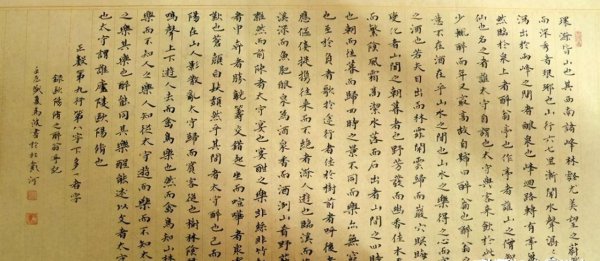 環滁皆山也其西南諸峰林壑尤美望之蔚
而深秀者琅邪也山行六七里漸聞水聲潺
瀉出於兩峰之間者釀泉也峰迴路轉有亭翼
然臨於泉上者醉翁亭也作亭者誰山之僧智
仙也名之者誰太守自謂也太守與客來飲於此
少輒醉而年又最高故自號曰醉翁也醉翁之
意不在酒在乎山水之間也山水之樂得之心而
之酒也若夫日出而林霏開雲歸而巖穴暝晦
變化者山間之朝暮者也野芳發而幽香佳木
而繁陰風霜高潔水落而石出者山間之四時
也朝而往暮而歸四時之景不同而樂亦無窮
也至於負者歌於途行者休於樹前者呼後者
應傴僂提攜往來而不絕者滁人遊也臨溪而
溪深而魚肥釀泉為酒泉香而酒洌山肴野蔌
雜然而前陳者太守宴也宴酣之樂非絲非竹
者中弈者勝觥籌交錯起坐而喧嘩者眾
蒼顏白髮頹然乎其間者太守醉也
陽在山人影散亂太守歸而賓客從也樹林陰
鳴聲上下遊人去而禽鳥樂也然而禽鳥知山林
樂而不知人之樂人知從太守遊而樂而不知太
之樂其樂也醉能同其樂醒能述以文者太
也太守謂誰廬陵歐陽修也
正數第九行第八字下多一者字
錄歐陽修之醉翁亭記
盛夏馬波書於北戴河